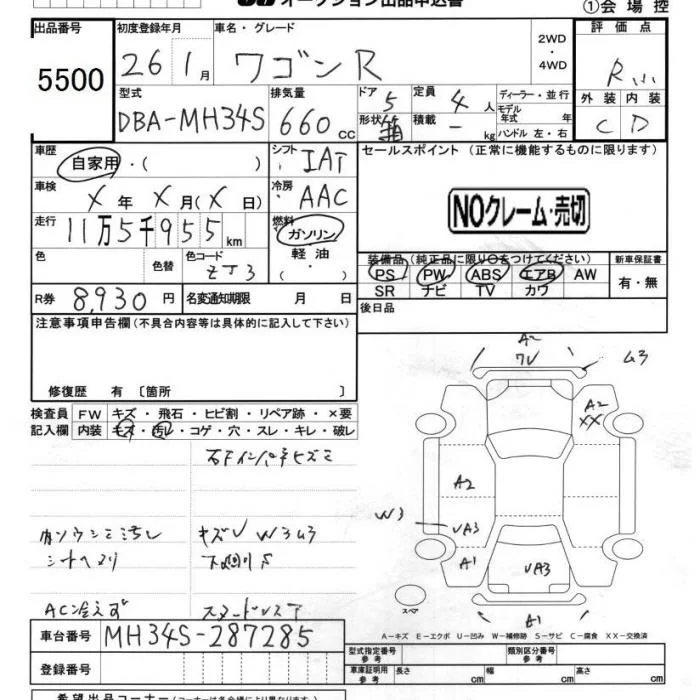 オークション出品申込書
①会場控
出品番号 初度登録年月 車名・グレード 評価点
5500 26 1月 ワゴンR 2WD・4WD R
型式 排気量 ドア 定員 ディーラー・並行 外装 内装
DBA-MH34S 660cc 5 4人 モデル年式 年 C D
形状 積載 - kg ハンドル 左・右
車歴 シフト セールスポイント (正常に機能するものに限ります)
自家用・( ) IAT
車検 X年 X月(X日) 冷房 AAC
NOクレーム・売切
走行 11万5千955km 燃料 ガソリン
軽油
・( )
色 色替 色コード ZJ3
装備品(純正品に限り○をつけてください) 新車保証書
PS PW ABS エアB AW 有・無
SR ナビ TV カワ
R券 8,930円 名変通知期限 月 日 後日品
注意事項申告欄(不具合内容等は具体的に記入して下さい)
修復歴 有 〔箇所 〕
検査員 FW キズ・飛石・ヒビ割・リペア跡・×要
記入欄 内装 キズ・汚レ・コゲ・穴・スレ・キレ・破レ
キズU W3
下廻りS
AC冷えず スタッドレス
A2
A2
XX
A2
W3
UA3
A1
UA3
スペア
A1
A-キズ E-エクボ U-凹み W-補修跡 S-サビ C-腐食 XX-交換済
車台番号 MH34S-287285
型式指定番号 参考 類別区分番号 参考
登録番号 車庫証明 参考 長さ cm 幅 cm 高さ cm
希望出品コーナー